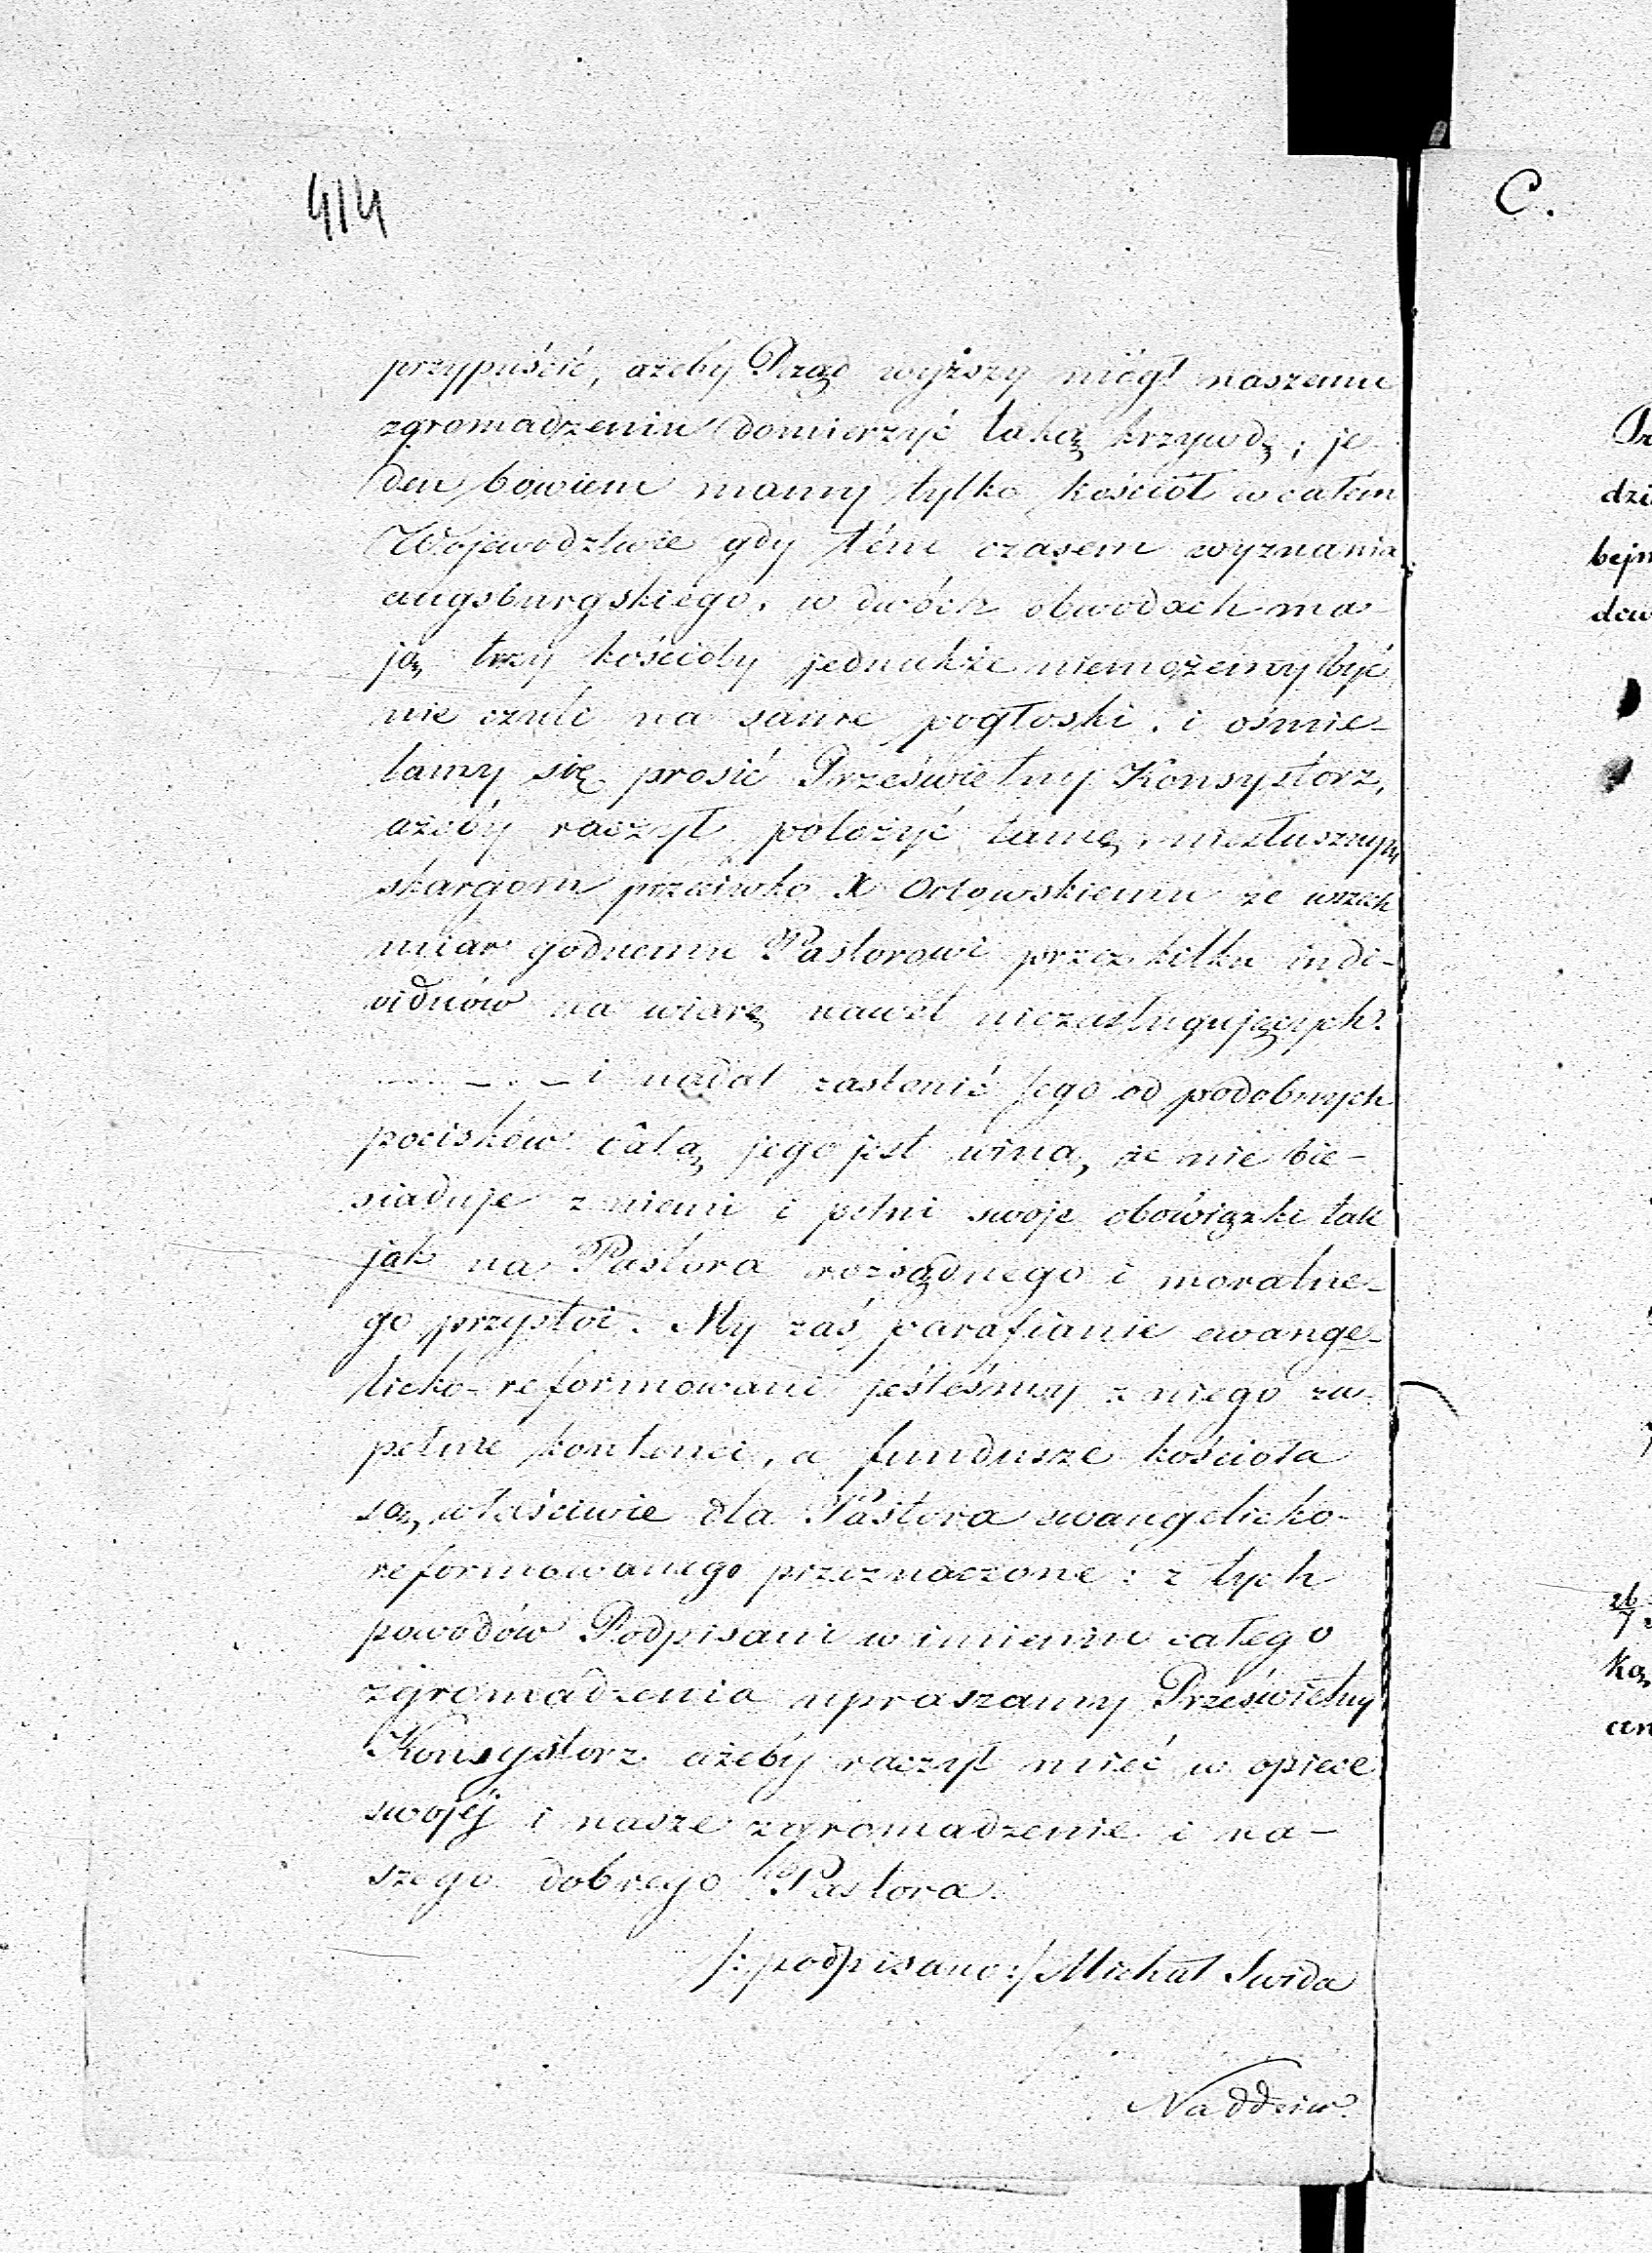 414
C.
przypuścić, ażeby Rząd wyższy mógł naszemu
zgromadzeniu domierzyć taką krzywdę; je-
den bowiem mamy tylko kościół w całém
Województwie gdy tém czasem wyznania
augsburgskiego, w dwóch obwodach ma-
ją trzy kościoły jednakże niemożemy być
nie czuli na same pogłoski, i ośmie-
lamy się prosić Prześwietny Konsystorz,
ażeby raczył położyć tamę, niesłusznym
skargom przeciwko X Orłowskiemu ze wszech
miar godnemu Pastorowi przez kilku indi-
viduów na wiarę nawet niezasługujących.
i nadal zasłonić Jego od podobnych
pocisków całą jego jest winą, że nie bie-
siaduje z niemi i pełni swoje obowiązki tak
jak na Pastora rozsądnego i moralne-
go przystoi. My zaś parafianie ewange-
licko-reformowani jesteśmy z niego zu-
pełnie kontenci, a fundusze kościoła
są właściwie dla Pastora ewangelicko-
reformowanego przeznaczone: z tych
powodów Podpisani w imieniu całego
zgromadzenia upraszamy Prześwietny
Konsystorz ażeby raczył mieć w opiece
swojéj i nasze zgromadzenie i na-
szego dobrego Pastora.
/:podpisano:/ Michał Świda